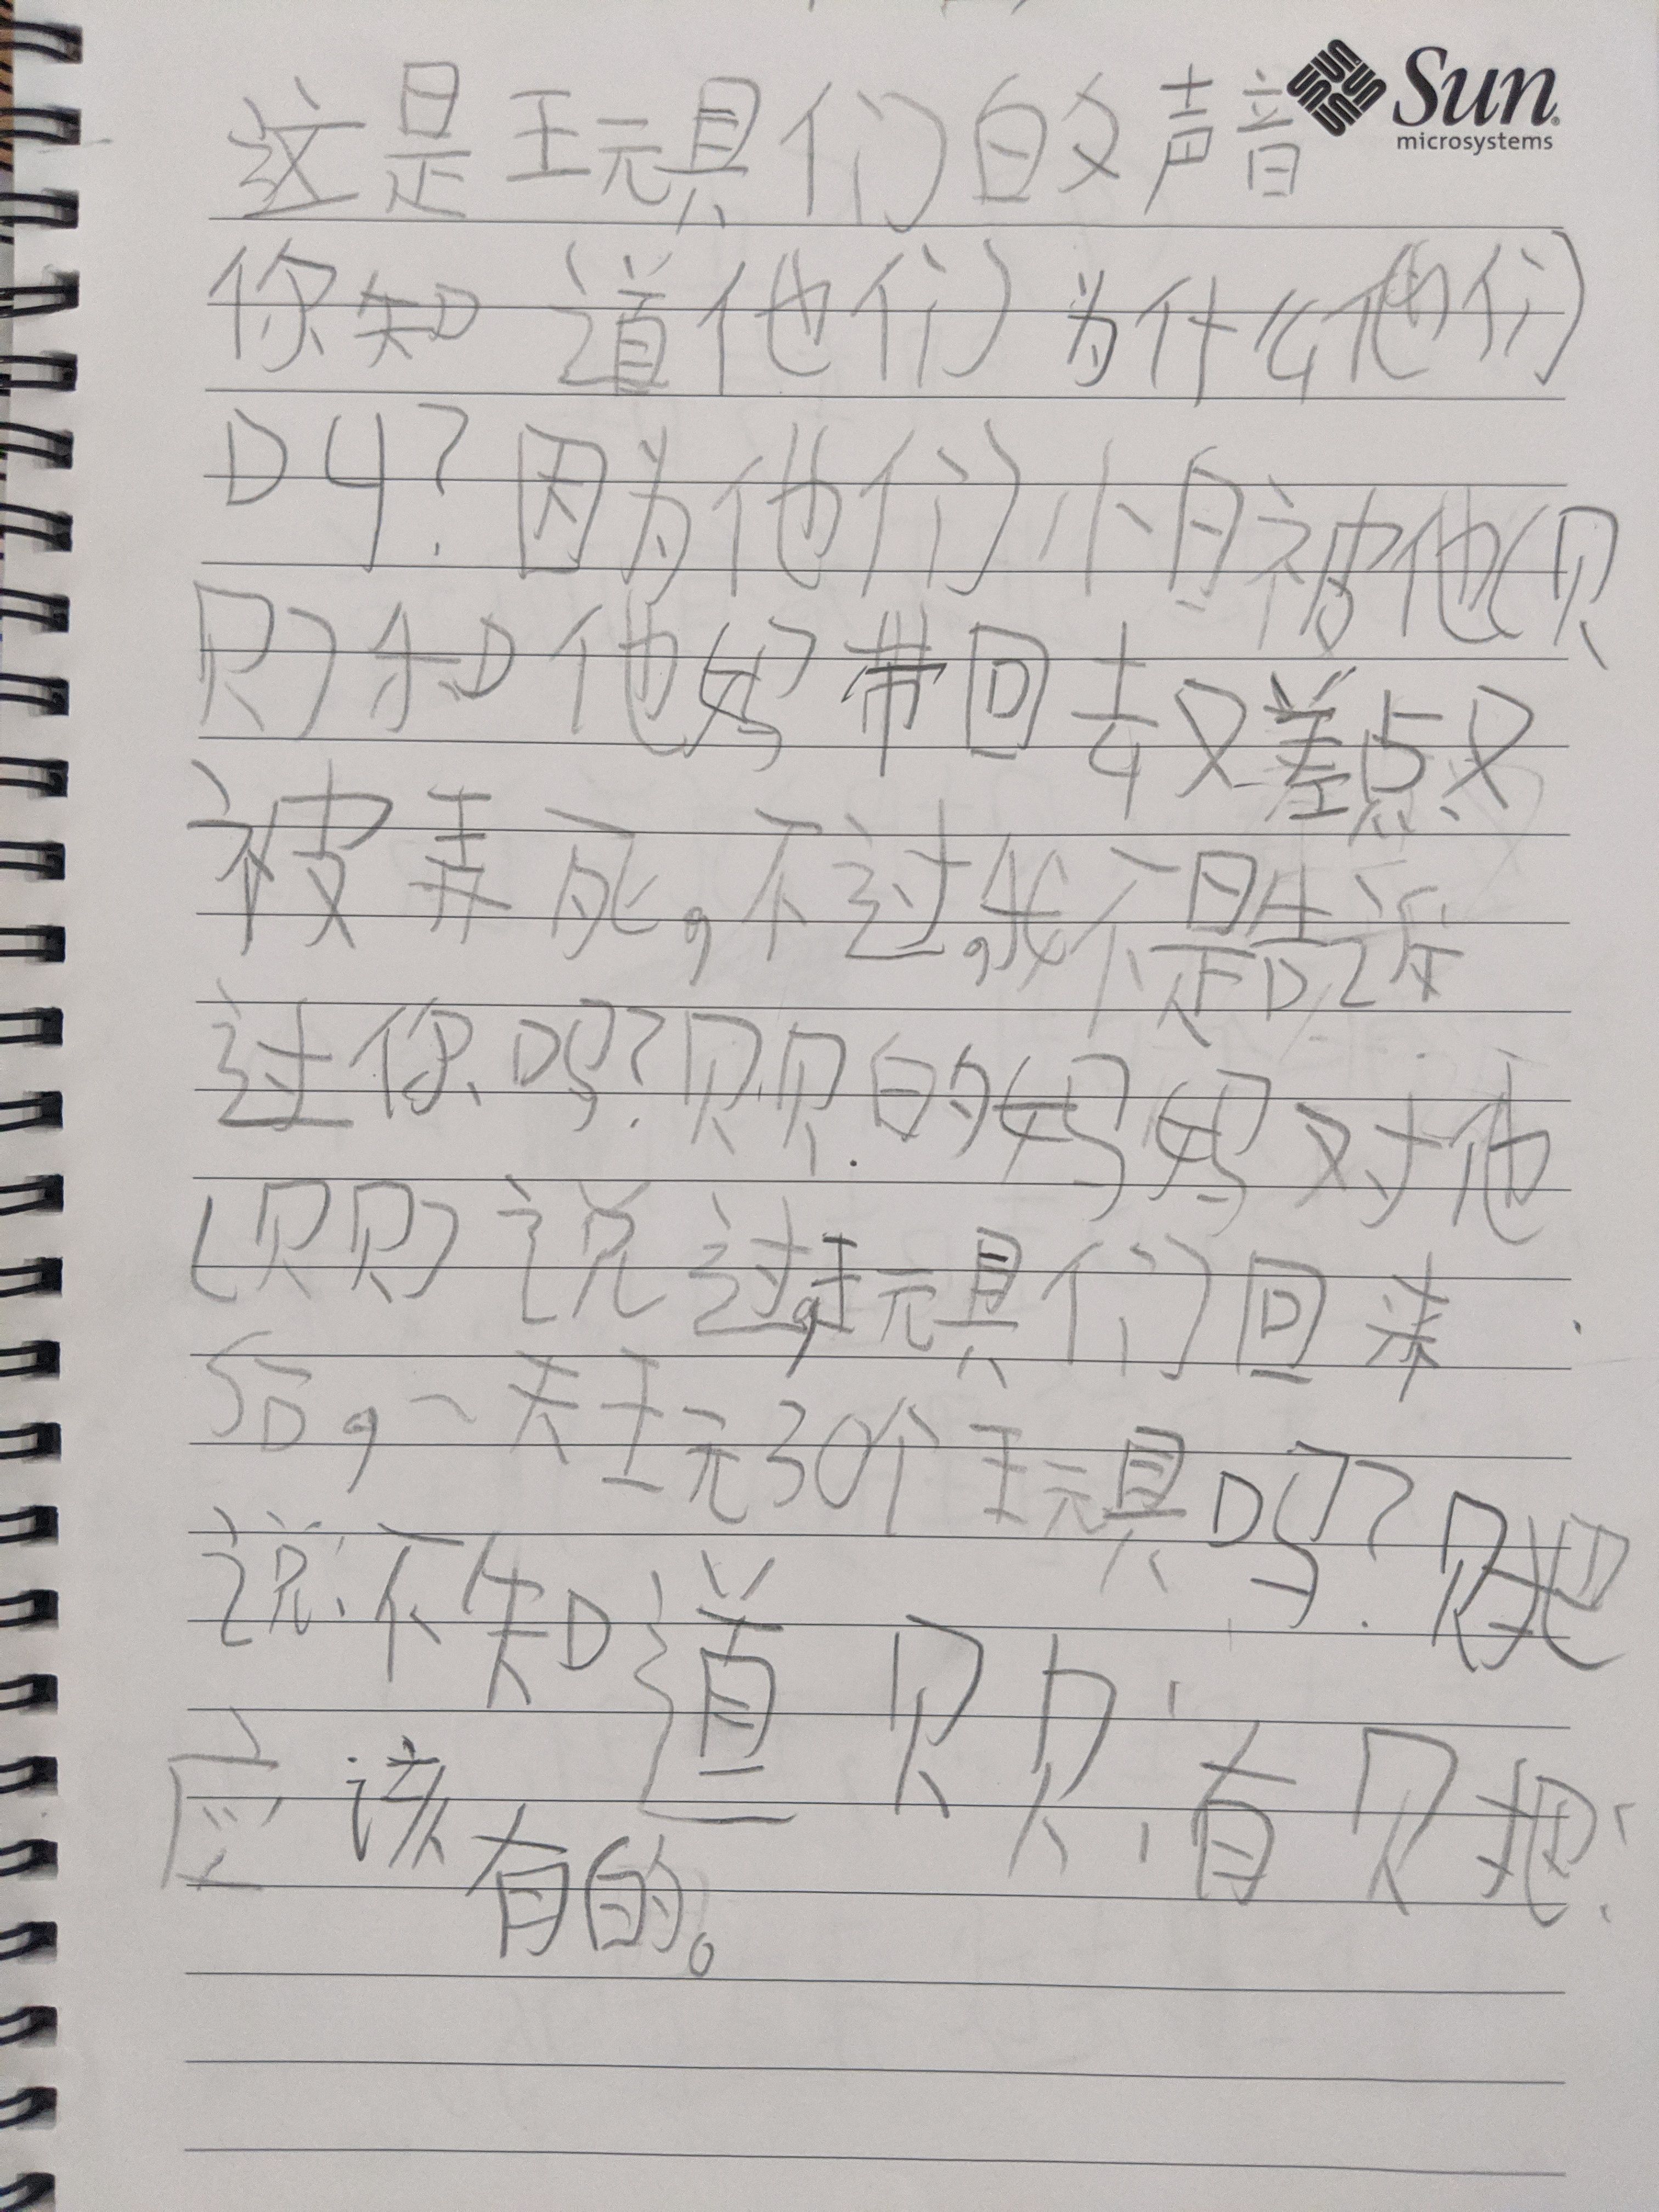 Sun
microsystems
这是玩具们的声音
你知道他们为什么他们
叫?因为他们小自被他(贝
贝)和他妈带回去又差点又
被弄死,不过,我不是告诉
过你吗?贝贝的妈妈对他
(贝贝)说过,玩具们回来
后,一天玩30个玩具吗?贝把
说:不知道 贝贝:有 贝把:
应该有的。